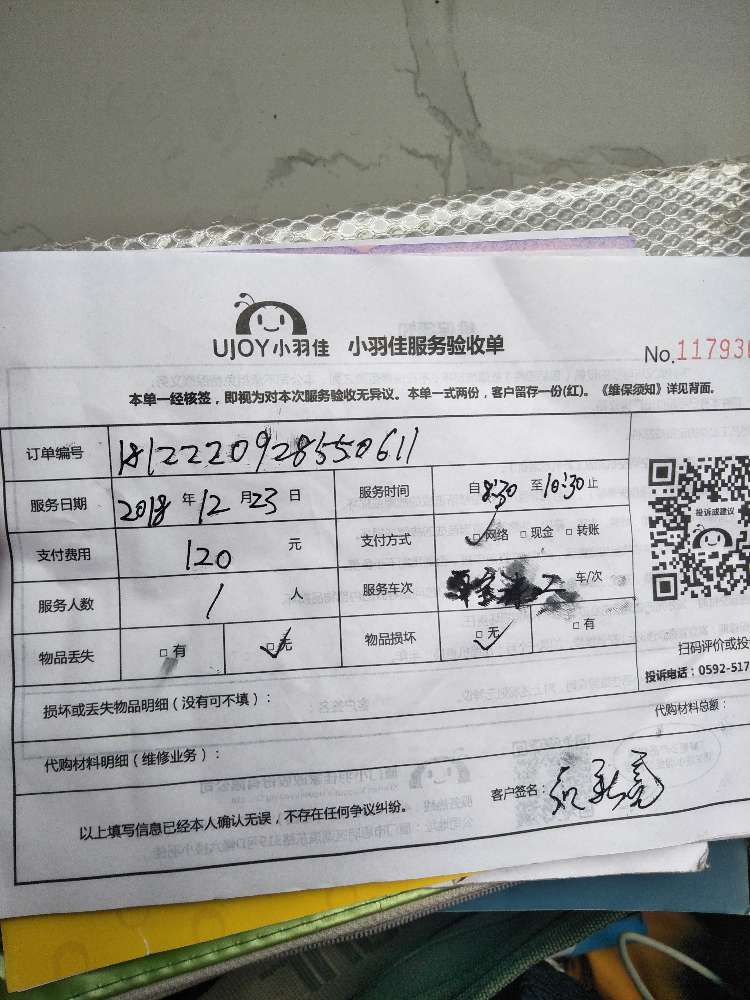 UJOY小羽佳 小羽佳服务验收单
No.117936
本单一经核签，即视为对本次服务验收无异议。本单一式两份，客户留存一份(红)。《维保须知》详见背面。
订单编号 181222209285550611
服务日期 2018 年 12 月 23 日 服务时间 自 8:30 至 10:30 止
支付费用 120 元 支付方式 □网络 □现金 □转账
投诉或建议
服务人数 1 人 服务车次 车/次
物品丢失 □有 □无 物品损坏 □无 □有
扫码评价或投
投诉电话：0592-517
损坏或丢失物品明细（没有可不填）：
代购材料总额：
代购材料明细（维修业务）：
客户签名：
以上填写信息已经本人确认无误，不存在任何争议纠纷。